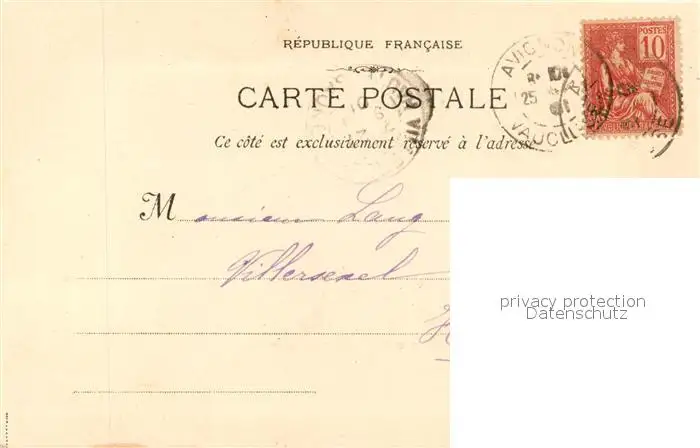 RÉPUBLIQUE FRANÇAISE
POSTES
10
AVIGNON
25
VAUCLUSE
CARTE POSTALE
Ce côté est exclusivement réservé à l'adresse
Monsieur Lang
Villersexel
H
privacy protection
Datenschutz